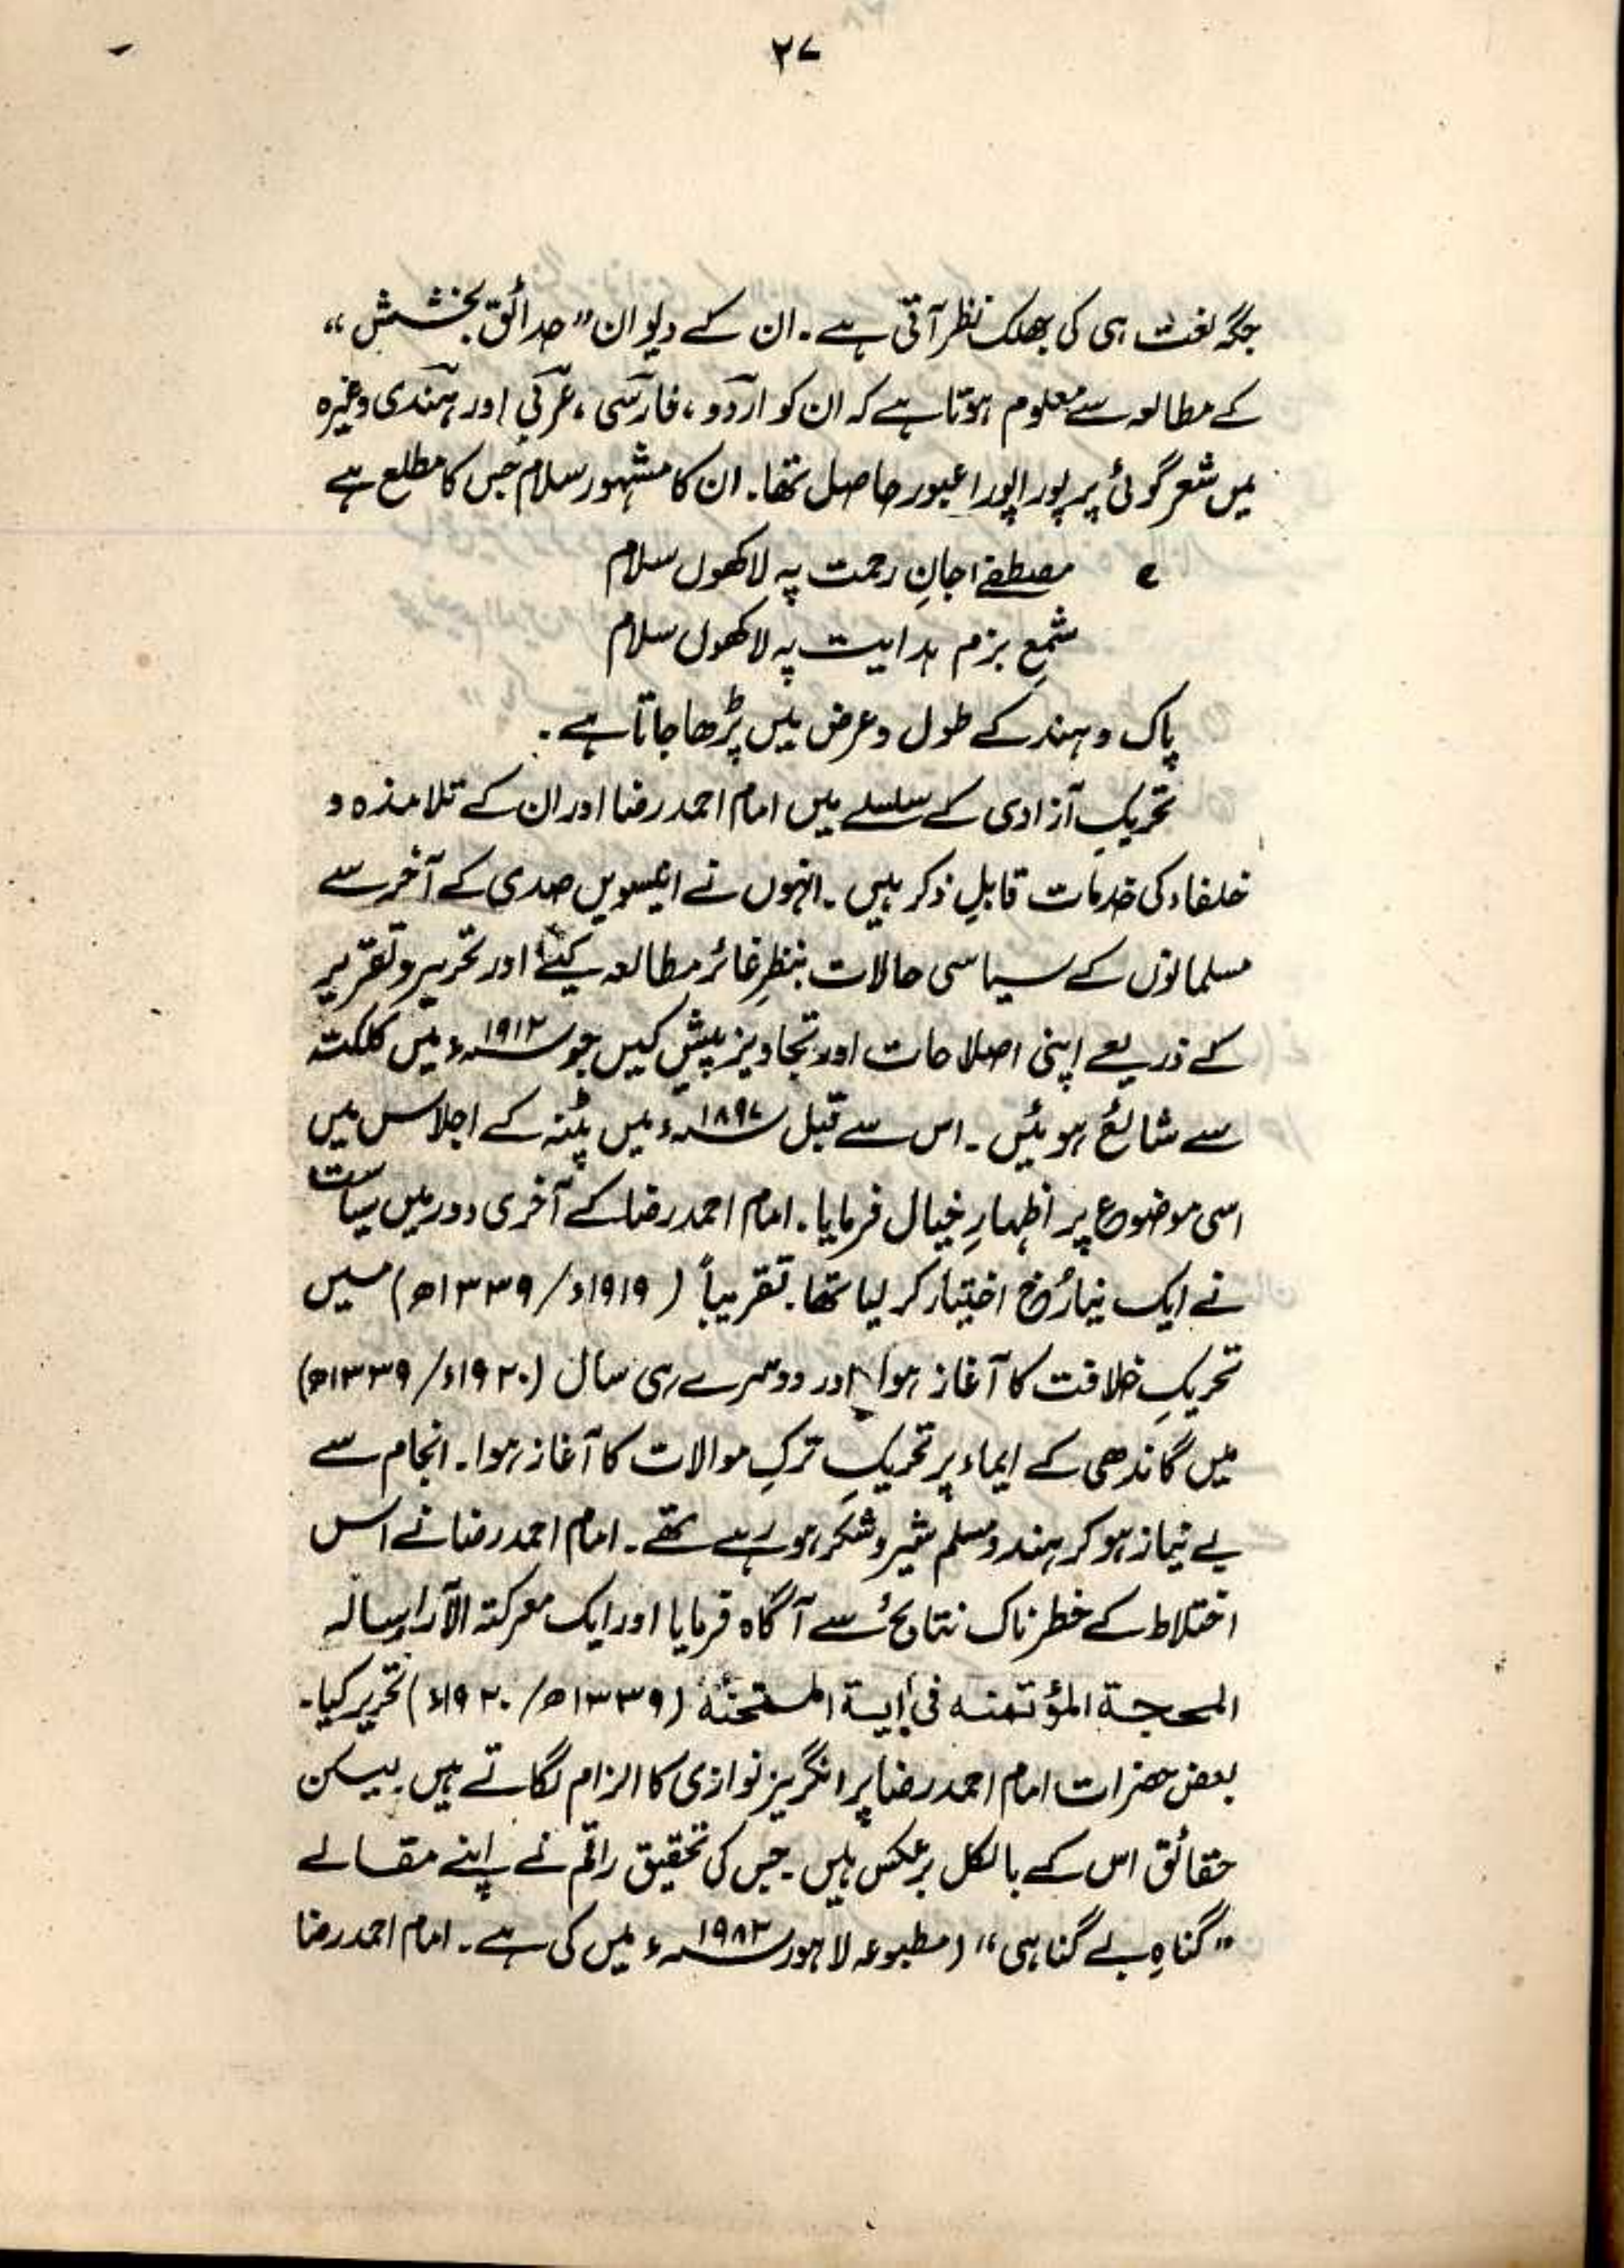 ۲۷
جگہ نعت ہی کی جھلک نظر آتی ہے۔ ان کے دیوان "حدائق بخشش"
کے مطالعہ سے معلوم ہوتا ہے کہ ان کو اردو، فارسی، عربی اور ہندی وغیرہ
میں شعر گوئی پر پورا پورا عبور حاصل تھا۔ ان کا مشہور سلام جس کا مطلع ہے
؎ مصطفےٰ جانِ رحمت پہ لاکھوں سلام
شمعِ بزم ہدایت پہ لاکھوں سلام
پاک و ہند کے طول و عرض میں پڑھا جاتا ہے۔
تحریکِ آزادی کے سلسلے میں امام احمد رضا اور ان کے تلامذہ و
خلفاء کی خدمات قابلِ ذکر ہیں۔ انہوں نے انیسویں صدی کے آخر سے
مسلمانوں کے سیاسی حالات بنظرِ غائر مطالعہ کیئے اور تحریر و تقریر
کے ذریعے اپنی اصلاحات اور تجاویز پیش کیں جو ۱۹۱۲ء میں کلکتہ
سے شائع ہوئیں۔ اس سے قبل ۱۸۹۷ء میں پٹنہ کے اجلاس میں
اسی موضوع پر اظہارِ خیال فرمایا۔ امام احمد رضا کے آخری دور میں سیاست
نے ایک نیا رُخ اختیار کر لیا تھا۔ تقریباً (۱۹۱۹ء/۱۳۳۹ھ) میں
تحریکِ خلافت کا آغاز ہوا اور دوسرے ہی سال (۱۹۲۰ء/۱۳۳۹ھ)
میں گاندھی کے ایماء پر تحریکِ ترکِ موالات کا آغاز ہوا۔ انجام سے
بے نیاز ہو کر ہندو مسلم شیر و شکر ہو رہے تھے۔ امام احمد رضا نے اس
اختلاط کے خطرناک نتائج سے آگاہ فرمایا اور ایک معرکتہ الآرا رسالہ
المحجۃ المؤتمنہ فی اٰیۃ الممتحنۃ (۱۳۳۹ھ/۱۹۲۰ء) تحریر کیا۔
بعض حضرات امام احمد رضا پر انگریز نوازی کا الزام لگاتے ہیں۔ لیکن
حقائق اس کے بالکل برعکس ہیں۔ جس کی تحقیق راقم نے اپنے مقالے
"گناہِ بے گناہی" (مطبوعہ لاہور ۱۹۸۲ء میں کی ہے۔ امام احمد رضا